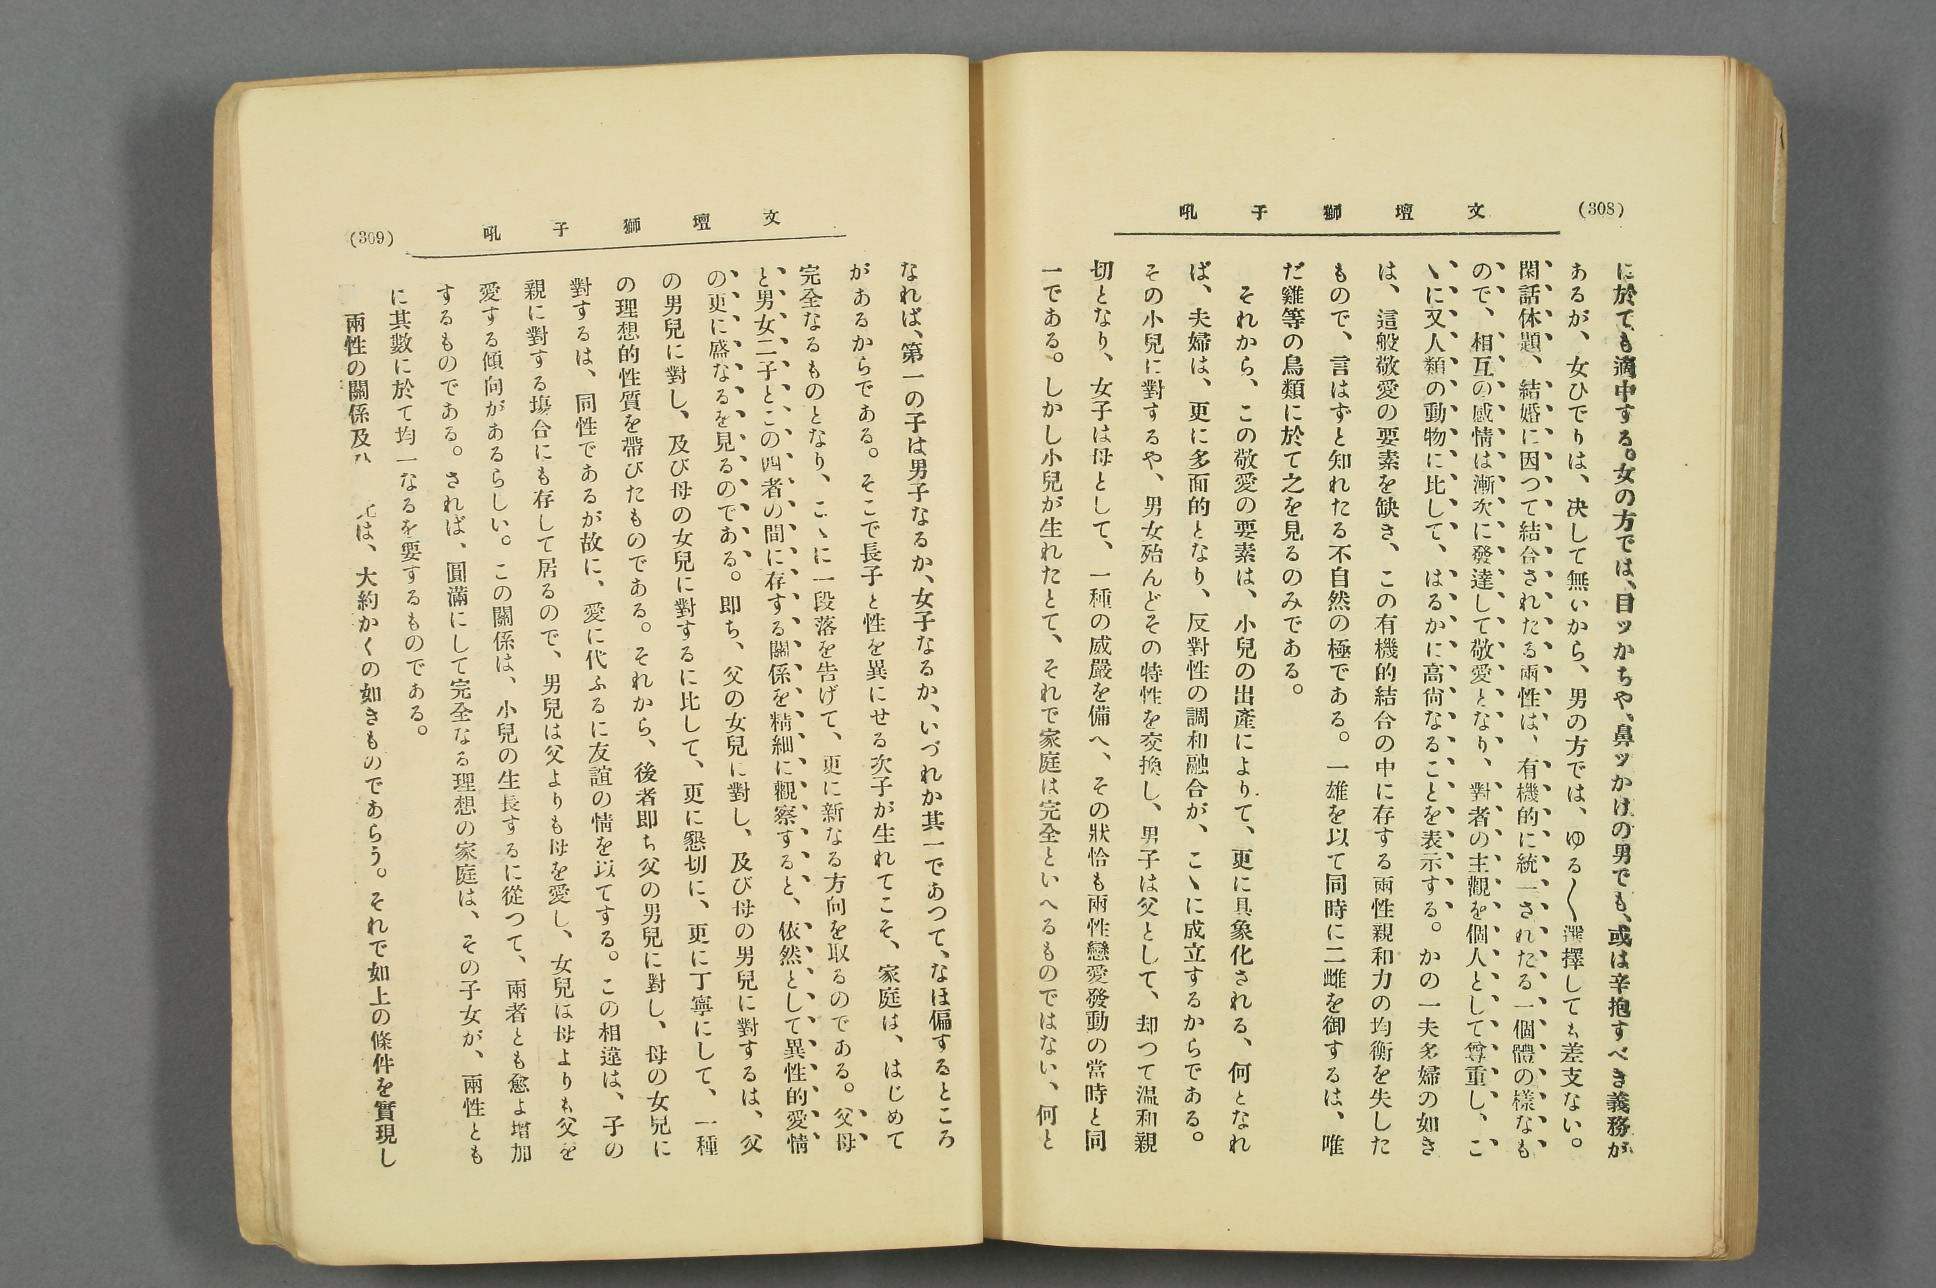 (308)
文壇獅子吼
に於ても適中する。女の方では、目ッかちや、鼻ッかけの男でも、或は辛抱すべき義務が
あるが、女ひでりは、決して無いから、男の方では、ゆる〱選擇しても差支ない。
閑話休題、結婚に因つて結合されたる兩性は、有機的に統一されたる一個體の樣なも
ので、相互の感情は漸次に發達して敬愛となり、對者の主觀を個人として尊重し、こ
ゝに又人類の動物に比して、はるかに高尙なることを表示する。かの一夫多婦の如き
は、這般敬愛の要素を缺き、この有機的結合の中に存する兩性親和力の均衡を失した
もので、言はずと知れたる不自然の極である。一雄を以て同時に二雌を御するは、唯
だ雞等の鳥類に於て之を見るのみである。
それから、この敬愛の要素は、小兒の出產によりて、更に具象化される、何となれ
ば、夫婦は、更に多面的となり、反對性の調和融合が、こゝに成立するからである。
その小兒に對するや、男女殆んどその特性を交換し、男子は父として、却つて温和親
切となり、女子は母として、一種の威嚴を備へ、その狀恰も兩性戀愛發動の當時と同
一である。しかし小兒が生れたとて、それで家庭は完全といへるものではない、何と
文壇獅子吼
(309)
なれば、第一の子は男子なるか、女子なるか、いづれか其一であつて、なほ偏するところ
があるからである。そこで長子と性を異にせる次子が生れてこそ、家庭は、はじめて
完全なるものとなり、こゝに一段落を告げて、更に新なる方向を取るのである。父母
と男女二子とこの四者の間に存する關係を精細に觀察すると、依然として異性的愛情
の更に盛なるを見るのである。即ち、父の女兒に對し、及び母の男兒に對するは、父
の男兒に對し、及び母の女兒に對するに比して、更に懇切に、更に丁寧にして、一種
の理想的性質を帶びたものである。それから、後者即ち父の男兒に對し、母の女兒に
對するは、同性であるが故に、愛に代ふるに友誼の情を以てする。この相違は、子の
親に對する塲合にも存して居るので、男兒は父よりも母を愛し、女兒は母よりも父を
愛する傾向があるらしい。この關係は、小兒の生長するに從つて、兩者とも愈よ增加
するものである。されば、圓滿にして完全なる理想の家庭は、その子女が、兩性とも
に其數に於て均一なるを要するものである。
兩性の關係及は、大約かくの如きものであらう。それで如上の條件を實現し